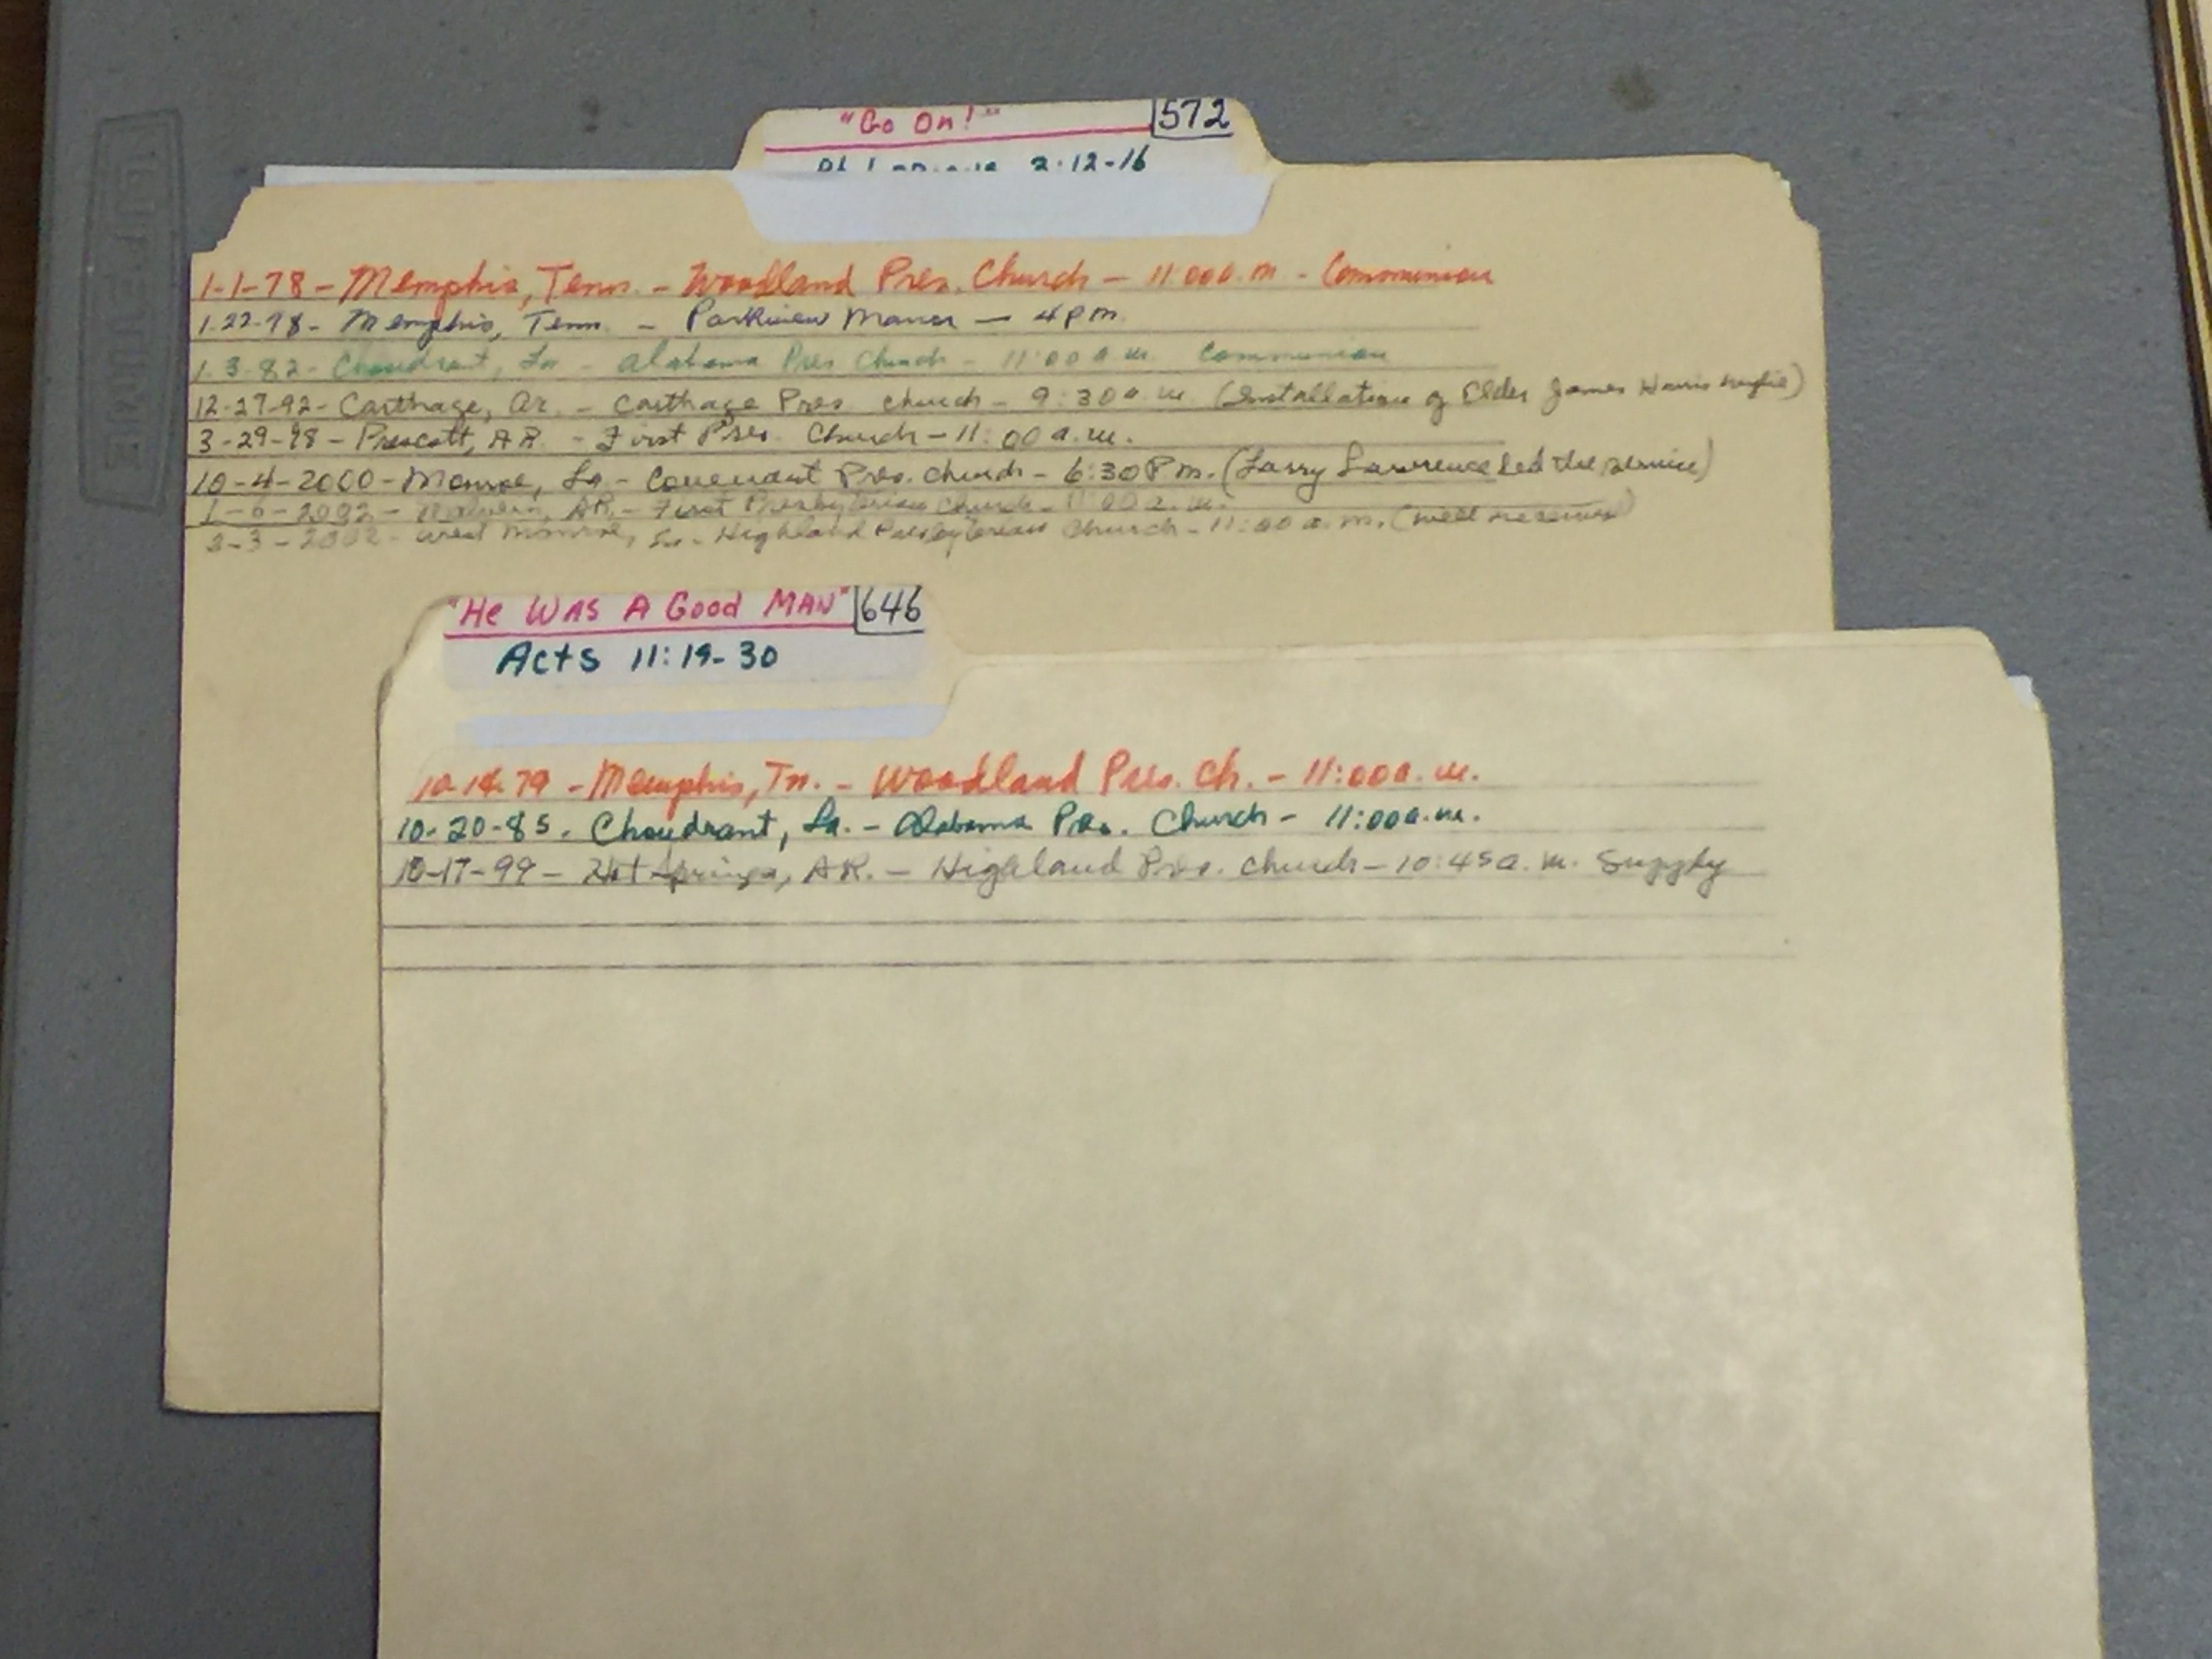 "Go On!" 572
2:12-16
1-1-78 - Memphis, Tenn. - Woodland Pres. Church - 11:00 a.m - Communion
1-22-78 - Memphis, Tenn. - Parkview Manor - 4 pm
1-3-82 - Choudrant, La - Alabama Pres Church - 11:00 a.m. Communion
12-27-92 - Carthage, Ar. - Carthage Pres. Church - 9:30 a.m. (Installation of Elder James Harris
3-29-98 - Prescott, AR. - First Pres. Church - 11:00 a.m.
10-4-2000 - Monroe, La. - Covenant Pres. Church - 6:30 P.m. (Larry Lawrence led the service)
1-6-2002 - Malvern, AR. - First Presbyterian Church - 11:00 a.m.
2-3-2002 - West Monroe, La - Highland Presbyterian Church - 11:00 a.m. (well received)
"He WAS A Good MAN" 646
Acts 11:19-30
10-14-79 - Memphis, Tn. - Woodland Pres. Ch. - 11:00 a.m.
10-20-85. Choudrant, La. - Alabama Pres. Church - 11:00 a.m.
10-17-99 - Hot Springs, AR. - Highland Pres. Church - 10:45 a.m. Supply